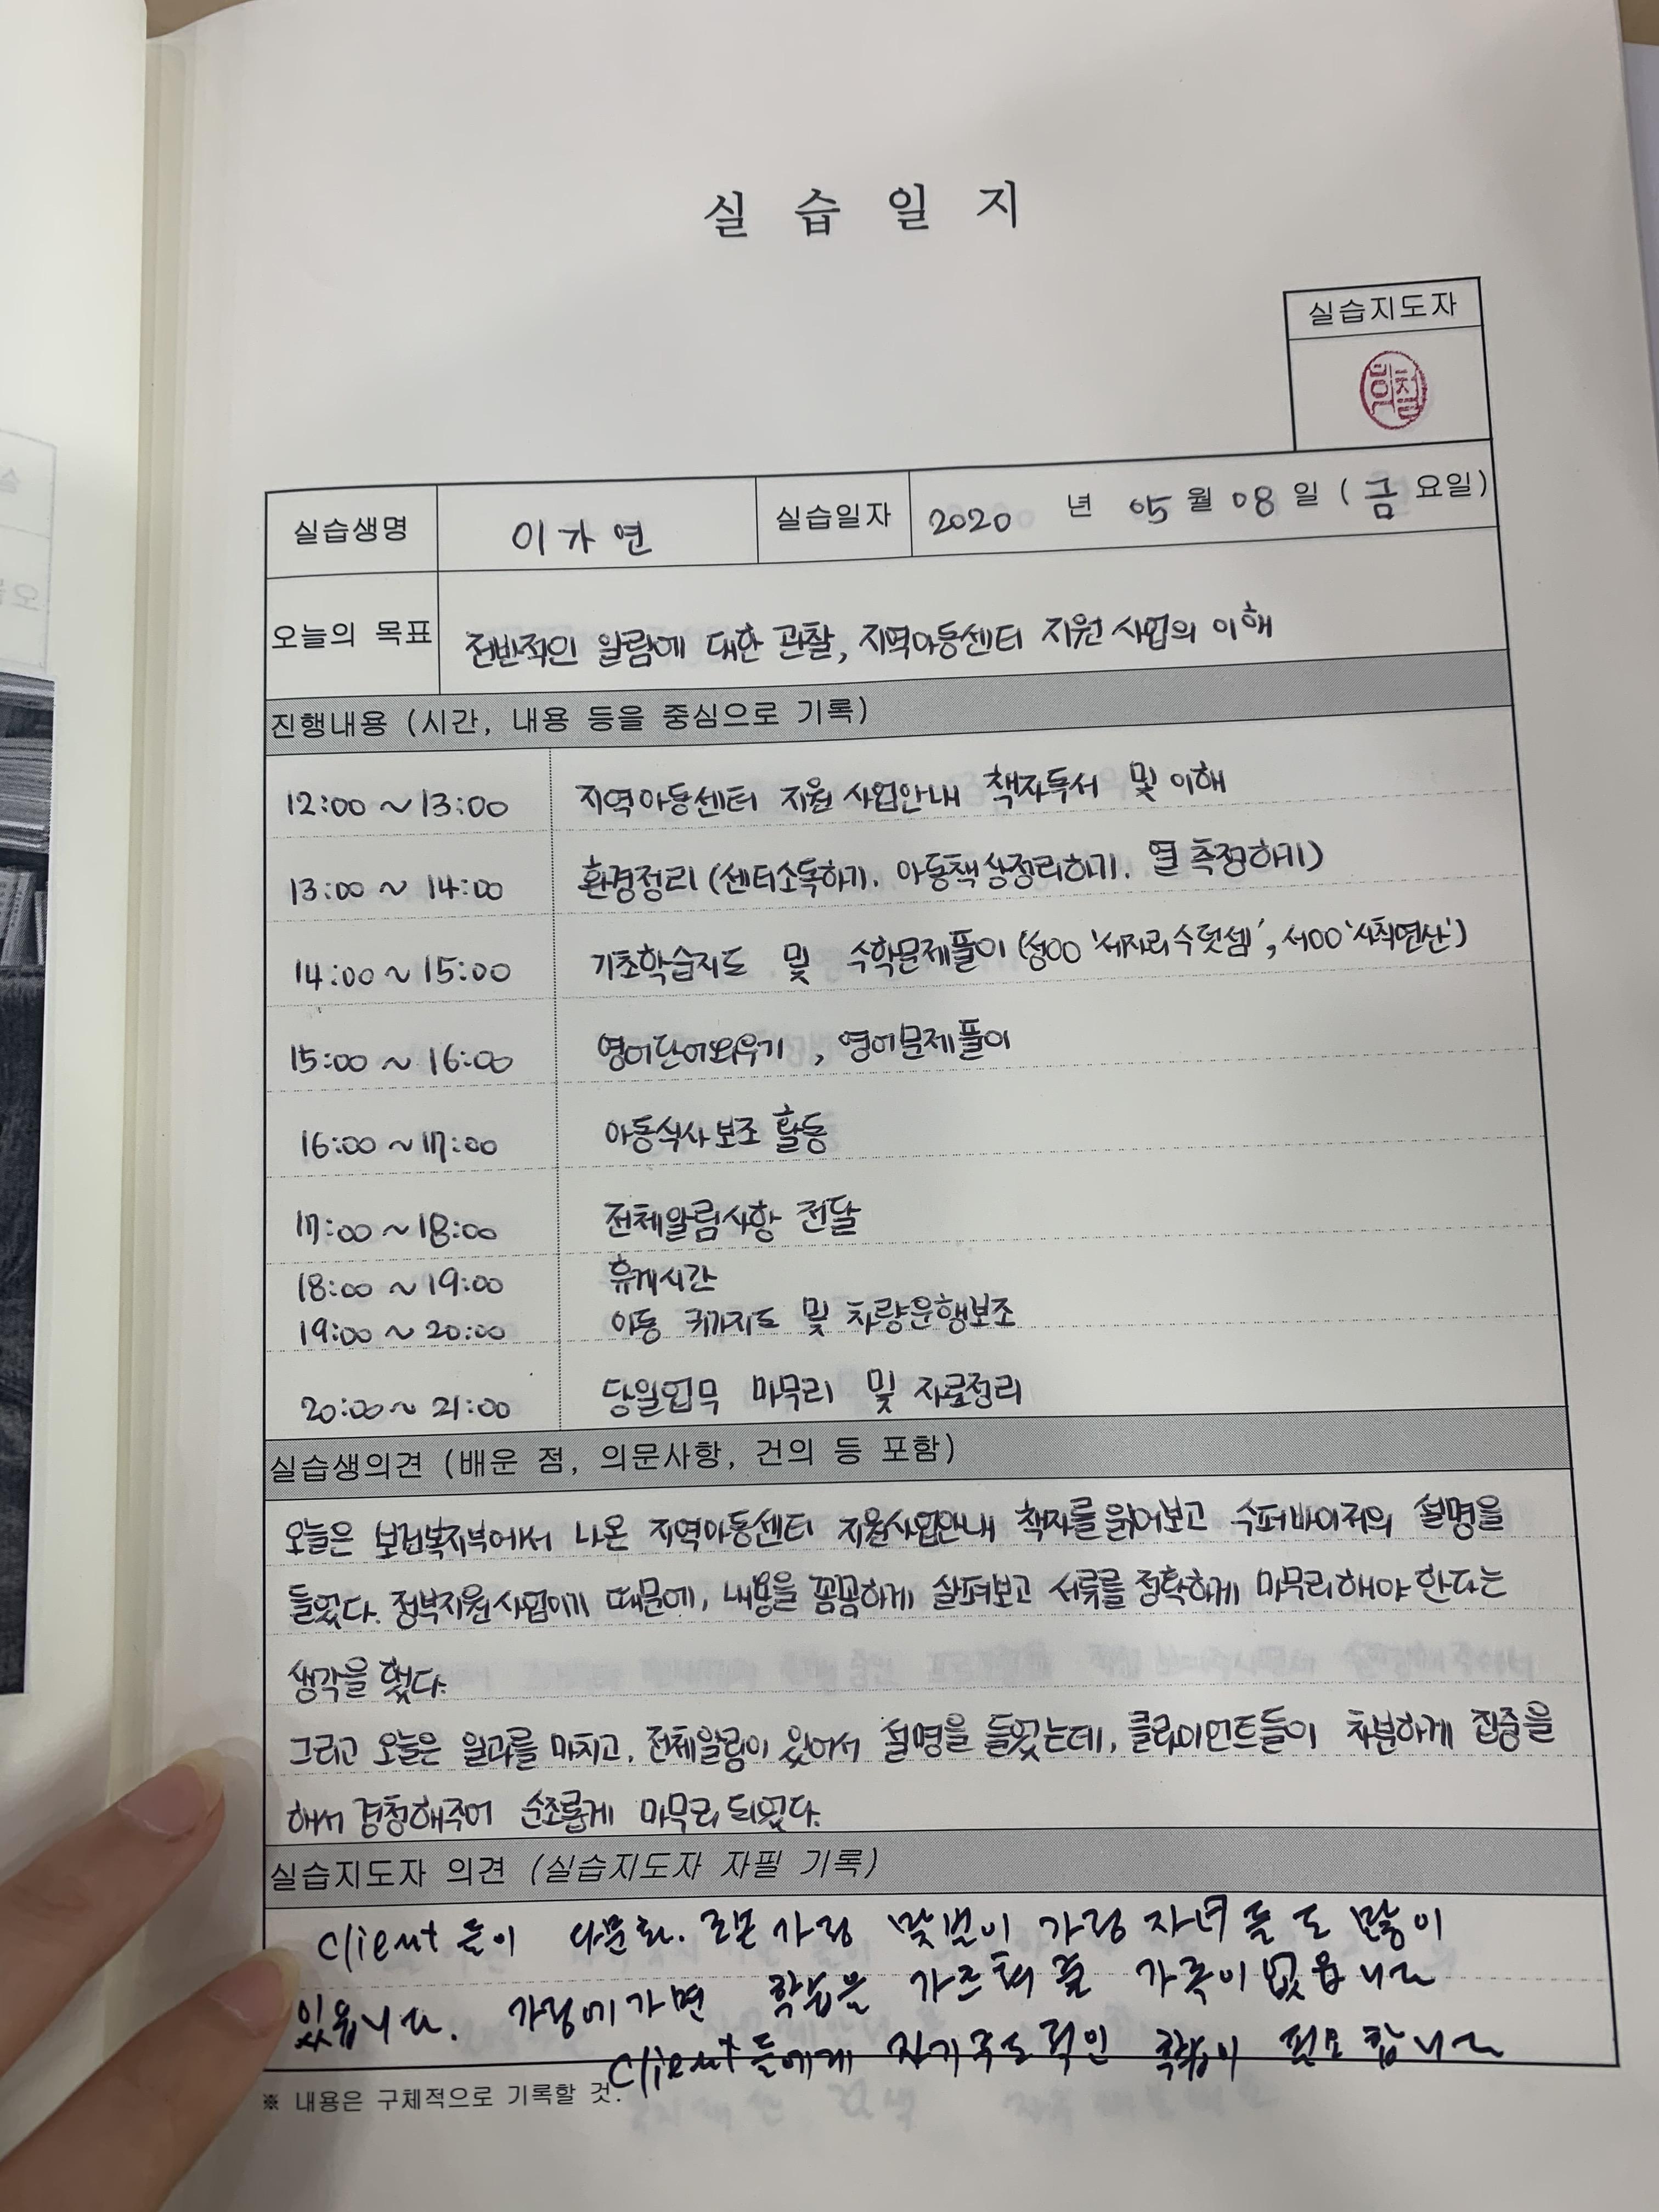 실 습 일 지
실습지도자
실습생명 이가연 실습일자 2020 년 05 월 08 일 ( 금 요일)
오늘의 목표 전반적인 알림에 대한 관찰, 지역아동센터 지원 사업의 이해
진행내용 (시간, 내용 등을 중심으로 기록)
12:00 ~ 13:00 지역아동센터 지원 사업안내 책자독서 및 이해
13:00 ~ 14:00 환경정리 (센터소독하기. 아동책상정리하기. 열 측정하기)
14:00 ~ 15:00 기초학습지도 및 수학문제풀이 (성OO '세자리 수 덧셈', 서OO '사칙연산')
15:00 ~ 16:00 영어단어외우기 , 영어문제풀이
16:00 ~ 17:00 아동식사 보조 활동
17:00 ~ 18:00 전체알림사항 전달
18:00 ~ 19:00 휴게시간
19:00 ~ 20:00 아동 귀가지도 및 차량운행보조
20:00 ~ 21:00 당일업무 마무리 및 자료정리
실습생의견 (배운 점, 의문사항, 건의 등 포함)
오늘은 보건복지부에서 나온 지역아동센터 지원사업안내 책자를 읽어보고 수퍼바이저의 설명을
들었다. 정부지원사업이기 때문에, 내용을 꼼꼼하게 살펴보고 서류를 정확하게 마무리해야 한다는
생각을 했다.
그리고 오늘은 일과를 마치고, 전체알림이 있어서 설명을 들었는데, 클라이언트들이 차분하게 집중을
해서 경청해주어 순조롭게 마무리 되었다.
실습지도자 의견 (실습지도자 자필 기록)
Client들이 다문화. 조손가정 맞벌이 가정 자녀들도 많이
있읍니다. 가정에 가면 학습을 가르쳐 줄 가족이 없읍니다
Client들에게 자기주도적인 학습이 필요합니다
※ 내용은 구체적으로 기록할 것.